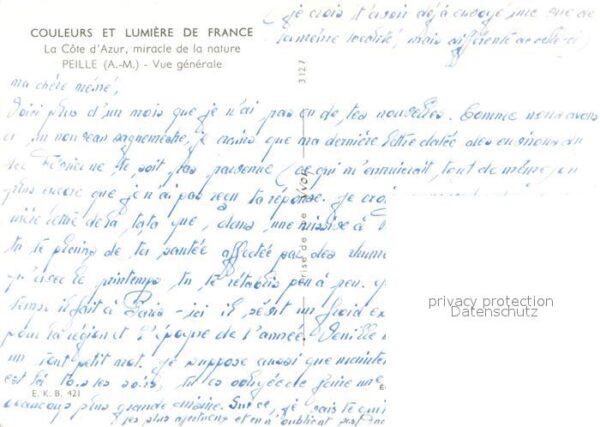 (je crois t'avoir déjà envoyé une vue de
la même localité, mais différente de celle-ci)
COULEURS ET LUMIÈRE DE FRANCE
La Côte d'Azur, miracle de la nature
PEILLE (A.-M.) - Vue générale
3127
ma chère
Voici plus d'un mois que je n'ai pas eu de tes nouvelles. Comme nous avons
ici un nouveau je crains que ma dernière lettre datée des environs du
Février ne te soit pas parvenue (ce qui m'ennuierait, tout de même, en
plus encore que je n'ai pas reçu ta réponse. Je
lettre de la tata que, dans une missive à
tu te plains de ta santée affectée par des rhum
qu'avec le printemps, tu te rétablis peu à peu.
temps il fait à Paris - ici il sévit un froid ex
pour la région et l'époque de l'année.
un tout petit mot. Je suppose aussi que mainten
est ici tous les soirs, tu es obligée de faire une
beaucoup plus grande cuisine. Sur ce, je vais te qui
les plus et en n'oubliant pas
prise de vue YVON
E. K. B. 421
privacy protection
Datenschutz